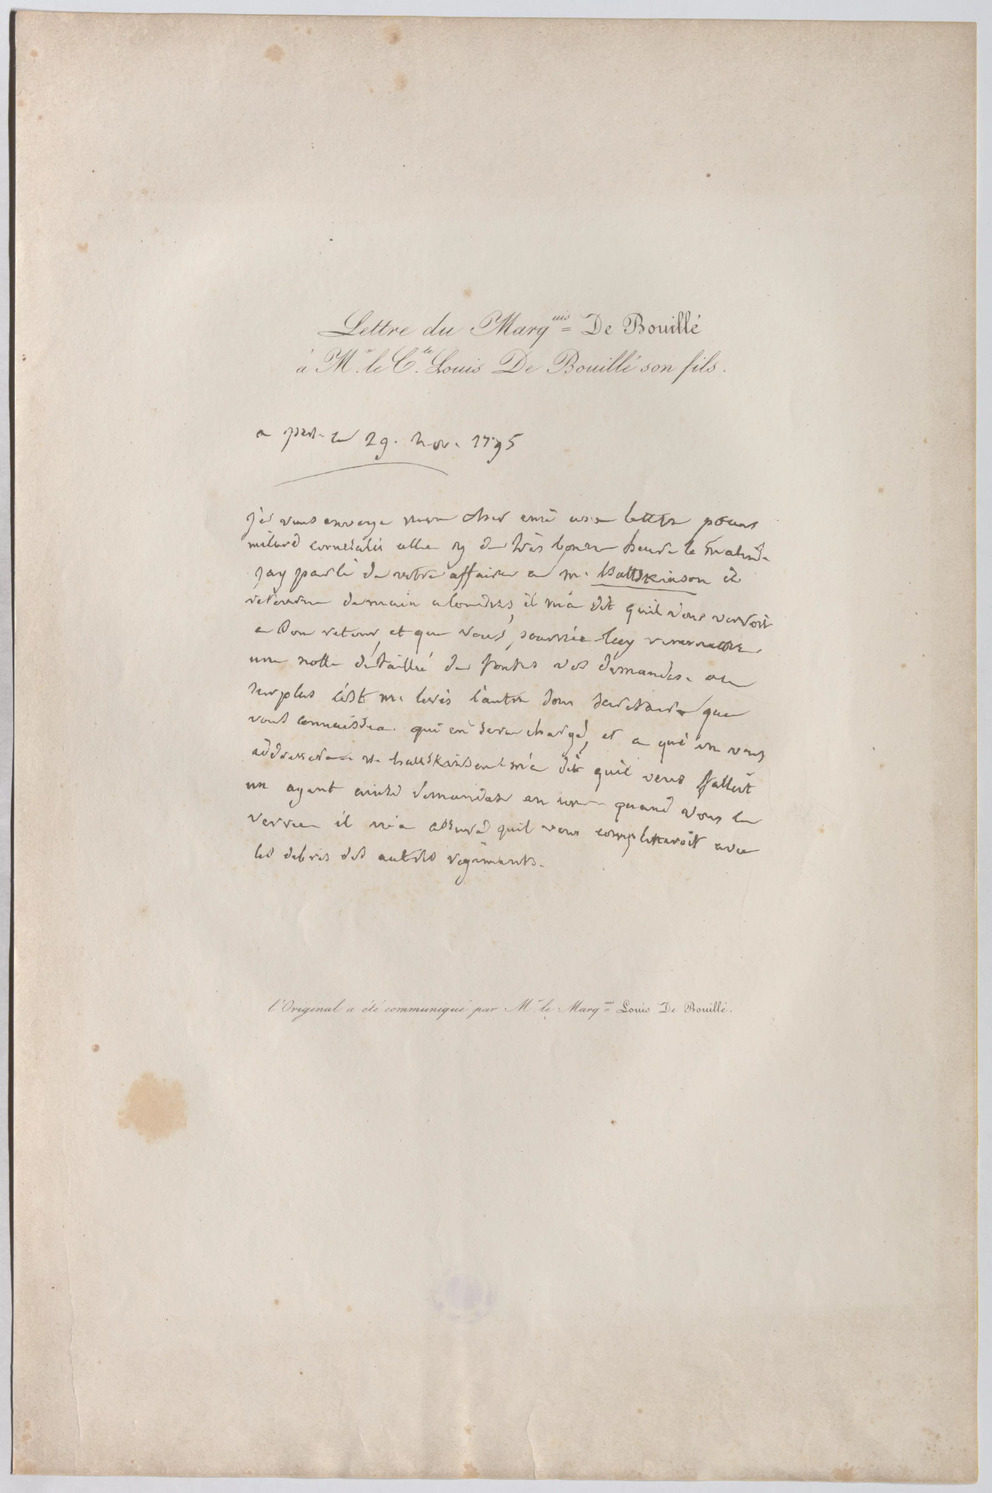 Lettre du Marq^uis De Bouillé
à M^r. le C^te. Louis De Bouillé son fils.
a 29. nov. 1795
je vous envoye mon cher ami une lettre pour
milord cornvalis allez y de très bonne heure le matin.
j'ay parlé de votre affaire a m. huttskinson il
retourne demain a londres, il m'a dit quil vous verroit
a son retour, et que vous pourriez luy remettre
une notte détaillée de toutes vos demandes. au
surplus c'est m. levis l'autre sous secretaire que
vous connaissez. qui en sera chargé, et a qui on vous
addressera m. huttskinson m'a dit quil vous falloit
un agent ainsi demandez en un quand vous le
verrez il m'a assuré quil vous completteroit avec
les debris des autres regiments.
l'Original a été communiqué par M^r le Marq^uis Louis De Bouillé.